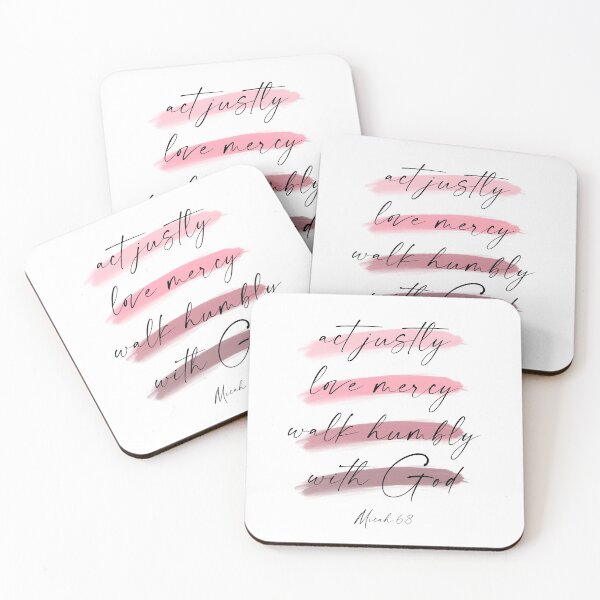 act justly
love mercy
humbly
act justly
love mercy
walk humbly
with God
act justly
love mercy
walk humbly
with G
Micah
act justly
love mercy
walk humbly
with God
Micah 6:8